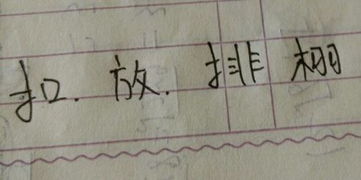 扣. 放. 排 棚